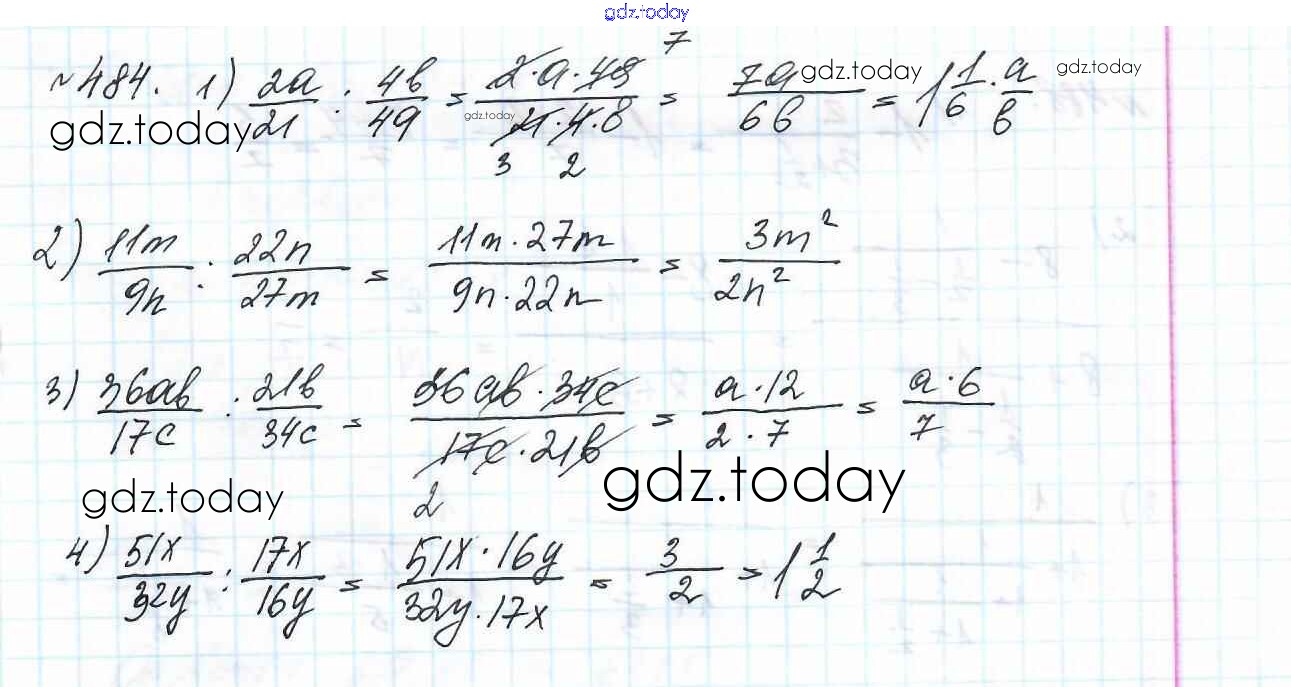 gdz.today
№484. 1) 2a/21 : 4b/49 = 2·a·49/21·4·b = 7a/6b = 1 1/6 · a/b
7
3 2
gdz.today gdz.today gdz.today gdz.today
2) 11m/9n : 22n/27m = 11m·27m/9n·22n = 3m²/2n²
3) 36ab/17c : 21b/34c = 36ab·34c/17c·21b = a·12/2·7 = a·6/7
2
gdz.today gdz.today
4) 51x/32y : 17x/16y = 51x·16y/32y·17x = 3/2 = 1 1/2